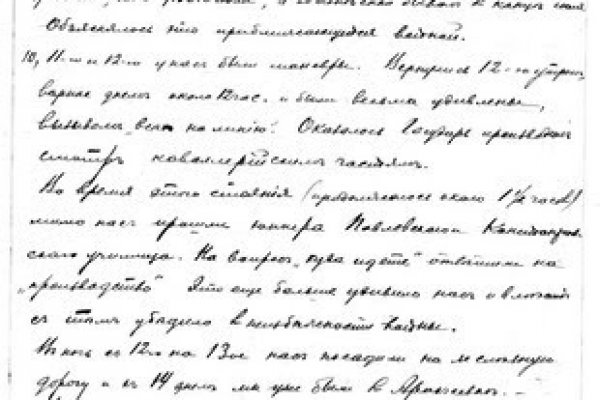 Объяснялось это приближающейся войной.
10, 11-го и 12-го у нас были маневры. Вернулись 12-го утром,
вернее днем около 12 час. и были весьма удивлены,
вызовом "всех на линию". Оказалось Государь производил
смотр кавалерийским частям.
Во время этого стояния (продолжалось около 1½ часов)
мимо нас прошли юнкера Павловского
училища. На вопрос "куда идете" ответили на
"производство" Это еще больше удивило нас и вместе
с тем убедило в неизбежности войны.
В ночь с 12го на 13ое нас посадили на железную
дорогу и 14 днем мы уже были в